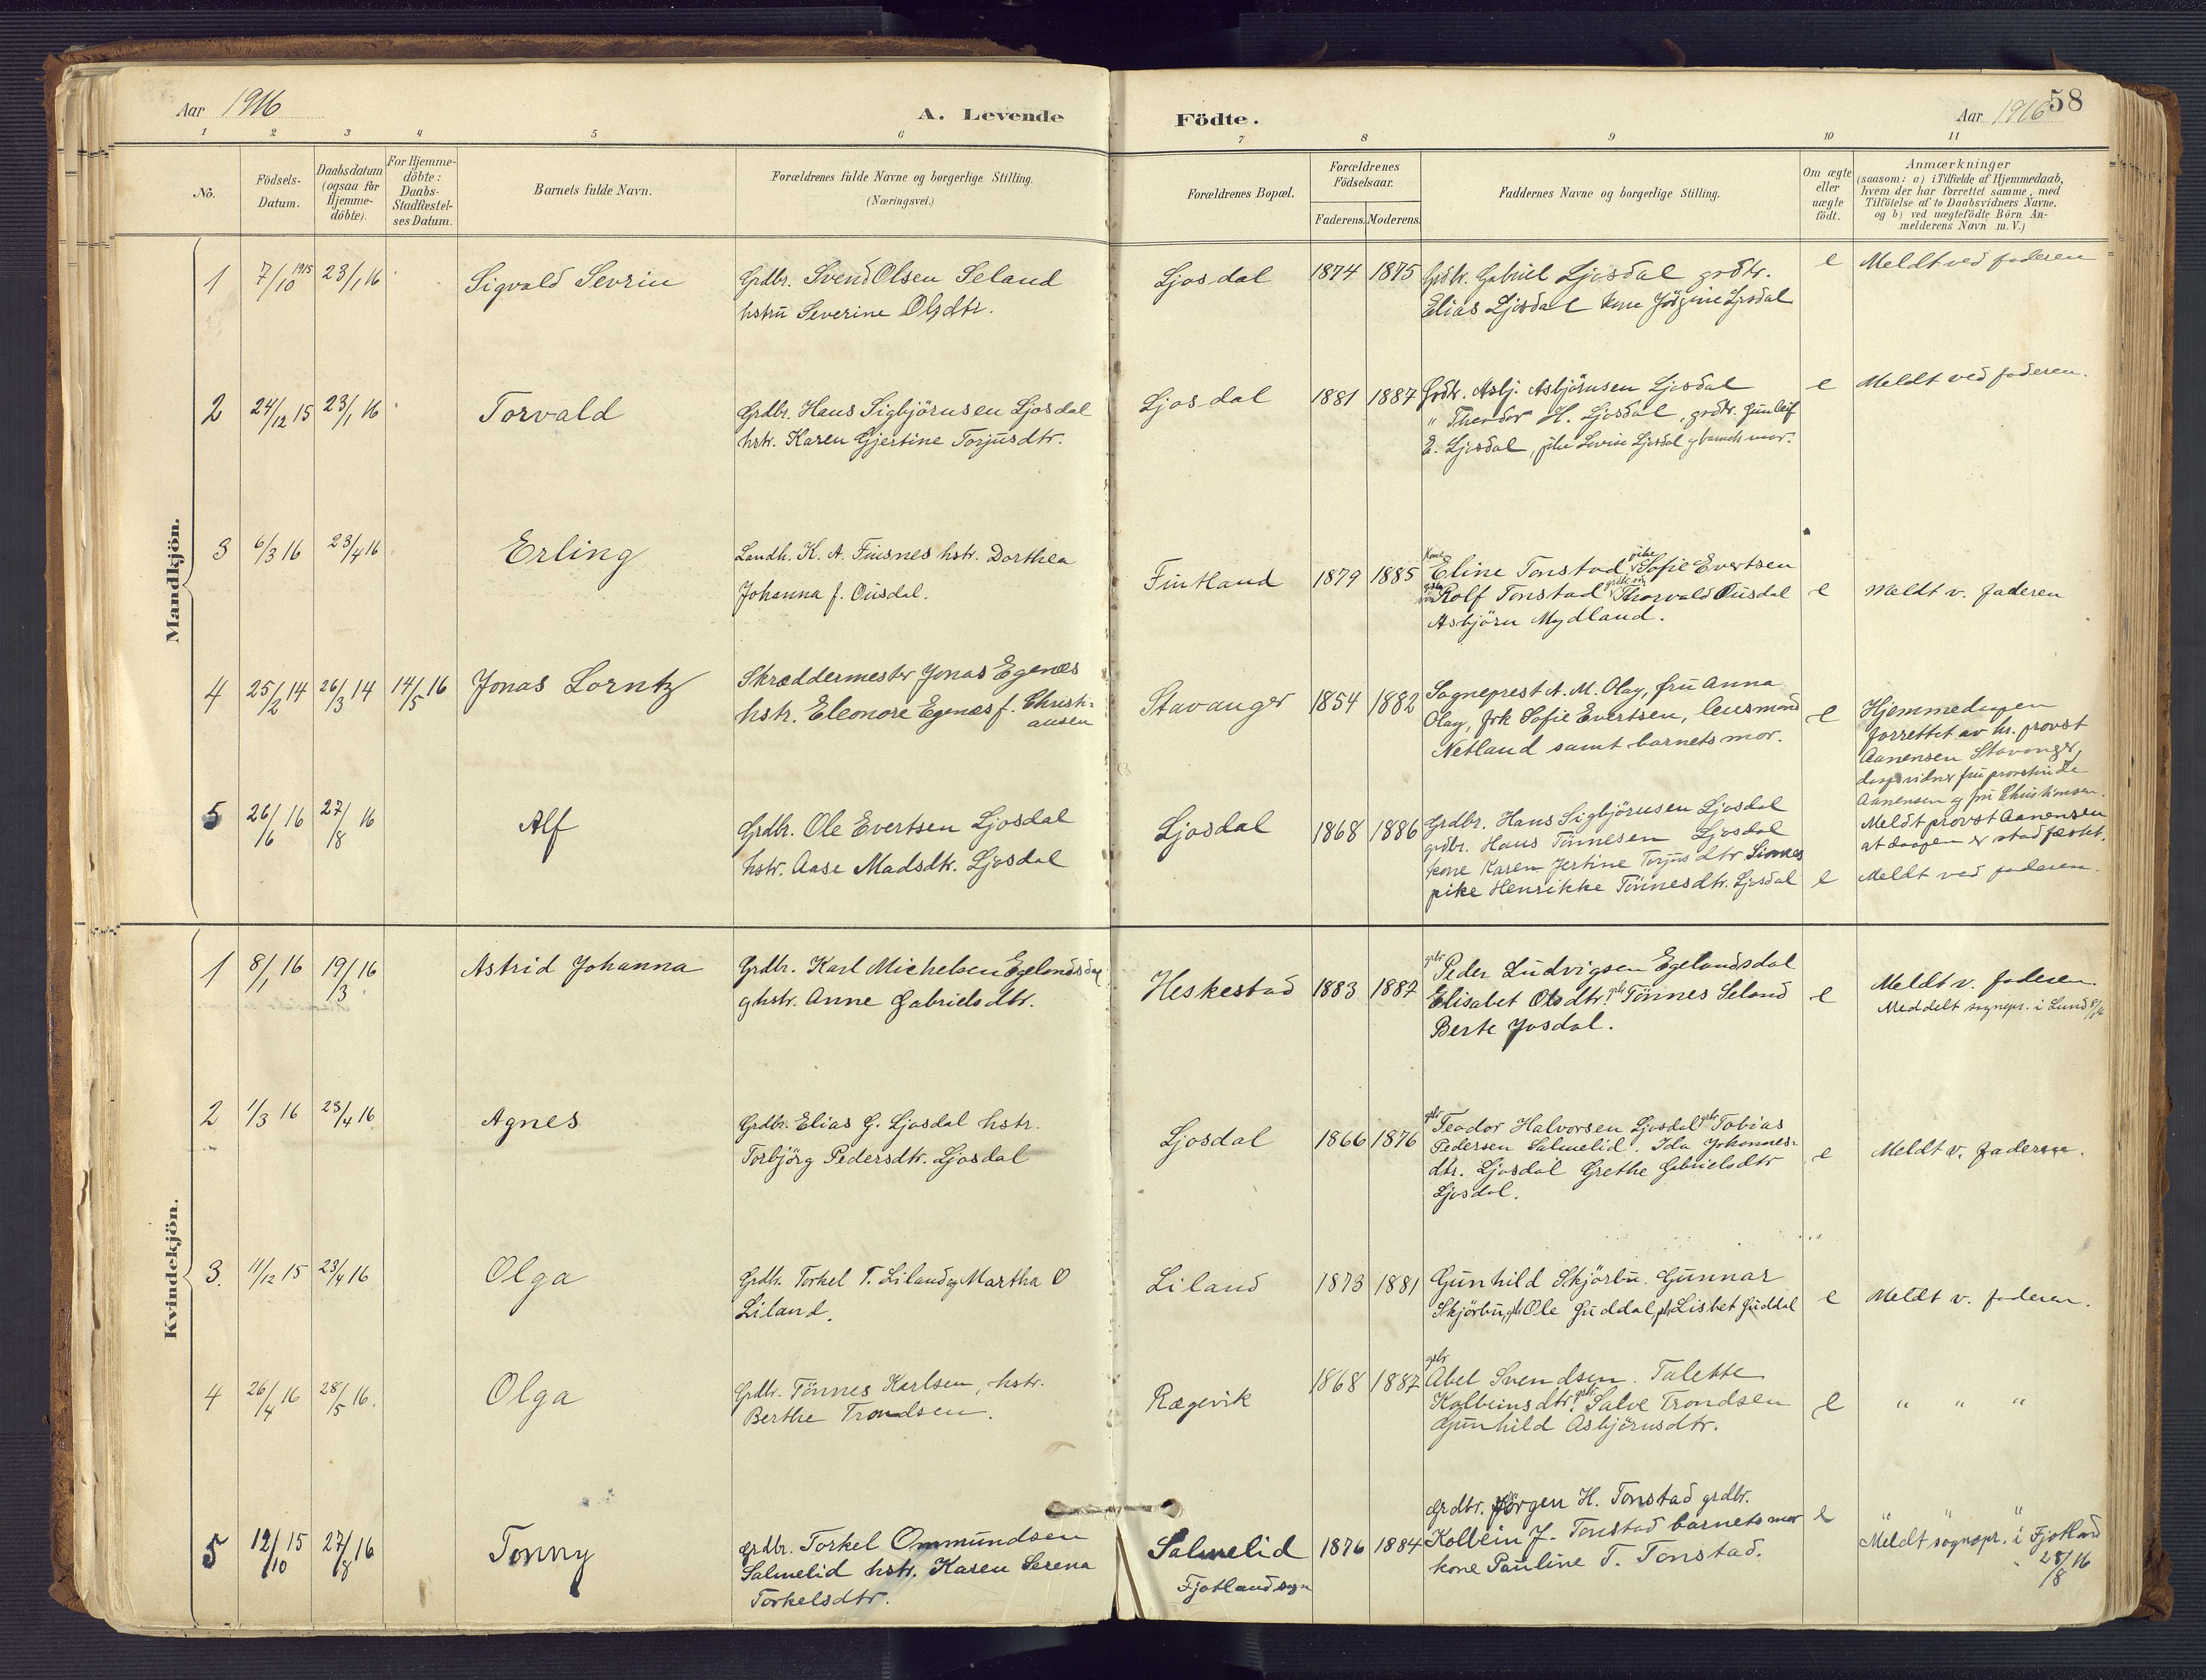 Aar 1916
A. Levende
Födte.
Aar 1916
58
1 2 3 4 5 6 7 8 9 10 11
No.
Födsels-
Datum.
Daabsdatum
(ogsaa for
Hjemme-
döbte).
For Hjemme-
döbte:
Daabs-
Stadfæstel-
ses Datum.
Barnets fulde Navn.
Forældrenes fulde Navne og borgerlige Stilling.
(Næringsvei.)
Forældrenes Bopæl.
Forældrenes
Födselsaar.
Faderens. Moderens.
Faddernes Navne og borgerlige Stilling.
Om ægte
eller
uægte
födt.
Anmærkninger
(saasom: a) i Tilfælde af Hjemmedaab,
hvem der har forrettet samme, med
Tilföielse af to Daabsvidners Navne,
og b) ved uægtefödte Börn An-
melderens Navn m. V.)
Mandkjön.
1 7/10 1915 23/1 16 Sigvald Sevrin
Grdbr. Svend Olsen Seland
hstru Severine Olsdtr.
Ljosdal 1874 1875
Grdbr. Gabriel Ljosdal grdbr.
Elias Ljosdal kone Jörgine Ljosdal
e Meldt ved faderen
2 24/12 15 23/1 16 Torvald
Grdbr. Hans Sigbjörnsen Ljosdal
hstr. Karen Gjertine Torjusdtr.
Ljosdal 1881 1887
Grdbr. Asbj. Asbjörnsen Ljosdal
" Theodor H. Ljosdal, grdbr. Gunleif
E. Ljosdal, pike Sevrine Ljosdal og barnets mor.
e Meldt ved faderen.
3 6/3 16 23/4 16 Erling
Landh. K. A. Finsnes hstr. Dorthea
Johanna f. Ousdal.
Fintland 1879 1885
Kone Eline Tonstad pike Sofie Evertsen
Rolf Tonstad grdbr. søn Thorvald Ousdal
Asbjörn Mydland.
e Meldt v. faderen
4 25/2 14 26/3 14 14/5 16 Jonas Lorntz
Skræddermester Jonas Egenæs
hstr. Eleonore Egenæs f. Christi-
ansen
Stavanger 1854 1882
Sogneprest A. M. Olay, fru Anna
Olay, frk Sofie Evertsen, lensmand
Netland samt barnets mor.
e Hjemmedaapen
forrettet av hr. provst
Aanensen Stavanger,
daapsvidner fru provstinde
Aanensen og fru Christiansen.
Meldt provst Aanensen
at daapen er stadfæstet.
5 26/6 16 27/8 16 Alf
Grdbr. Ole Evertsen Ljosdal
hstr. Aase Madsdtr. Ljosdal
Ljosdal 1868 1886
Grdbr. Hans Sigbjörnsen Ljosdal
grdbr. Hans Tönnesen Ljosdal
kone Karen Jertine Torjusdtr
pike Henrikke Tönnesdtr. Ljosdal
e Meldt ved faderen.
Kvindekjön.
1 8/1 16 19/3 16 Astrid Johanna
Grdbr. Karl Michelsen Egelandsdal
og hstr. Anne Gabrielsdtr.
Heskestad 1883 1887
grdbr Peder Ludvigsen Egelandsdal
Elisabet Olsdtr. grdbr Tönnes Seland
Berte Josdal.
e Meldt v. faderen.
Meddelt sognepr. i Lund
2 1/3 16 23/4 16 Agnes
Grdbr. Elias G. Ljosdal hstr.
Torbjörg Pedersdtr. Ljosdal
Ljosdal 1866 1876
grdbr Teodor Halvorsen Ljosdal grdbr Tobias
Pedersen Salmelid. Ida Johannes-
dtr. Ljosdal Grethe Gabrielsdtr
Ljosdal.
e Meldt v. faderen.
3. 11/12 15 23/4 16 Olga
Grdbr. Torkel T. Liland og Martha O
Liland.
Liland 1873 1881
Gunhild Skjörbu. Gunnar
Skjörbu, Ole Guddal, Lisbet Guddal
e Meldt v. faderen.
4 26/4 16 28/5 16. Olga
Grdbr. Tönnes Karlsen, hstr.
Berthe Trondsen.
Rægevik 1868 1887
grdbr Abel Svendsen. Talette
Kolbeinsdtr. grdbr. Salve Trondsen
Gunhild Asbjörnsdtr.
e " " "
5 12/10 15 27/8 16 Tonny
grdbr. Torkel Ommundsen
Salmelid hstr. Karen Serena
Torkelsdtr.
Salmelid
Fjotland sogn
1876 1884
Grdbr. Jörgen H. Tonstad grdbr.
Kolbein J. Tonstad barnets mor
kone Pauline T. Tonstad.
e " "
Meldt sognepr. i Fjotland
28/8 16